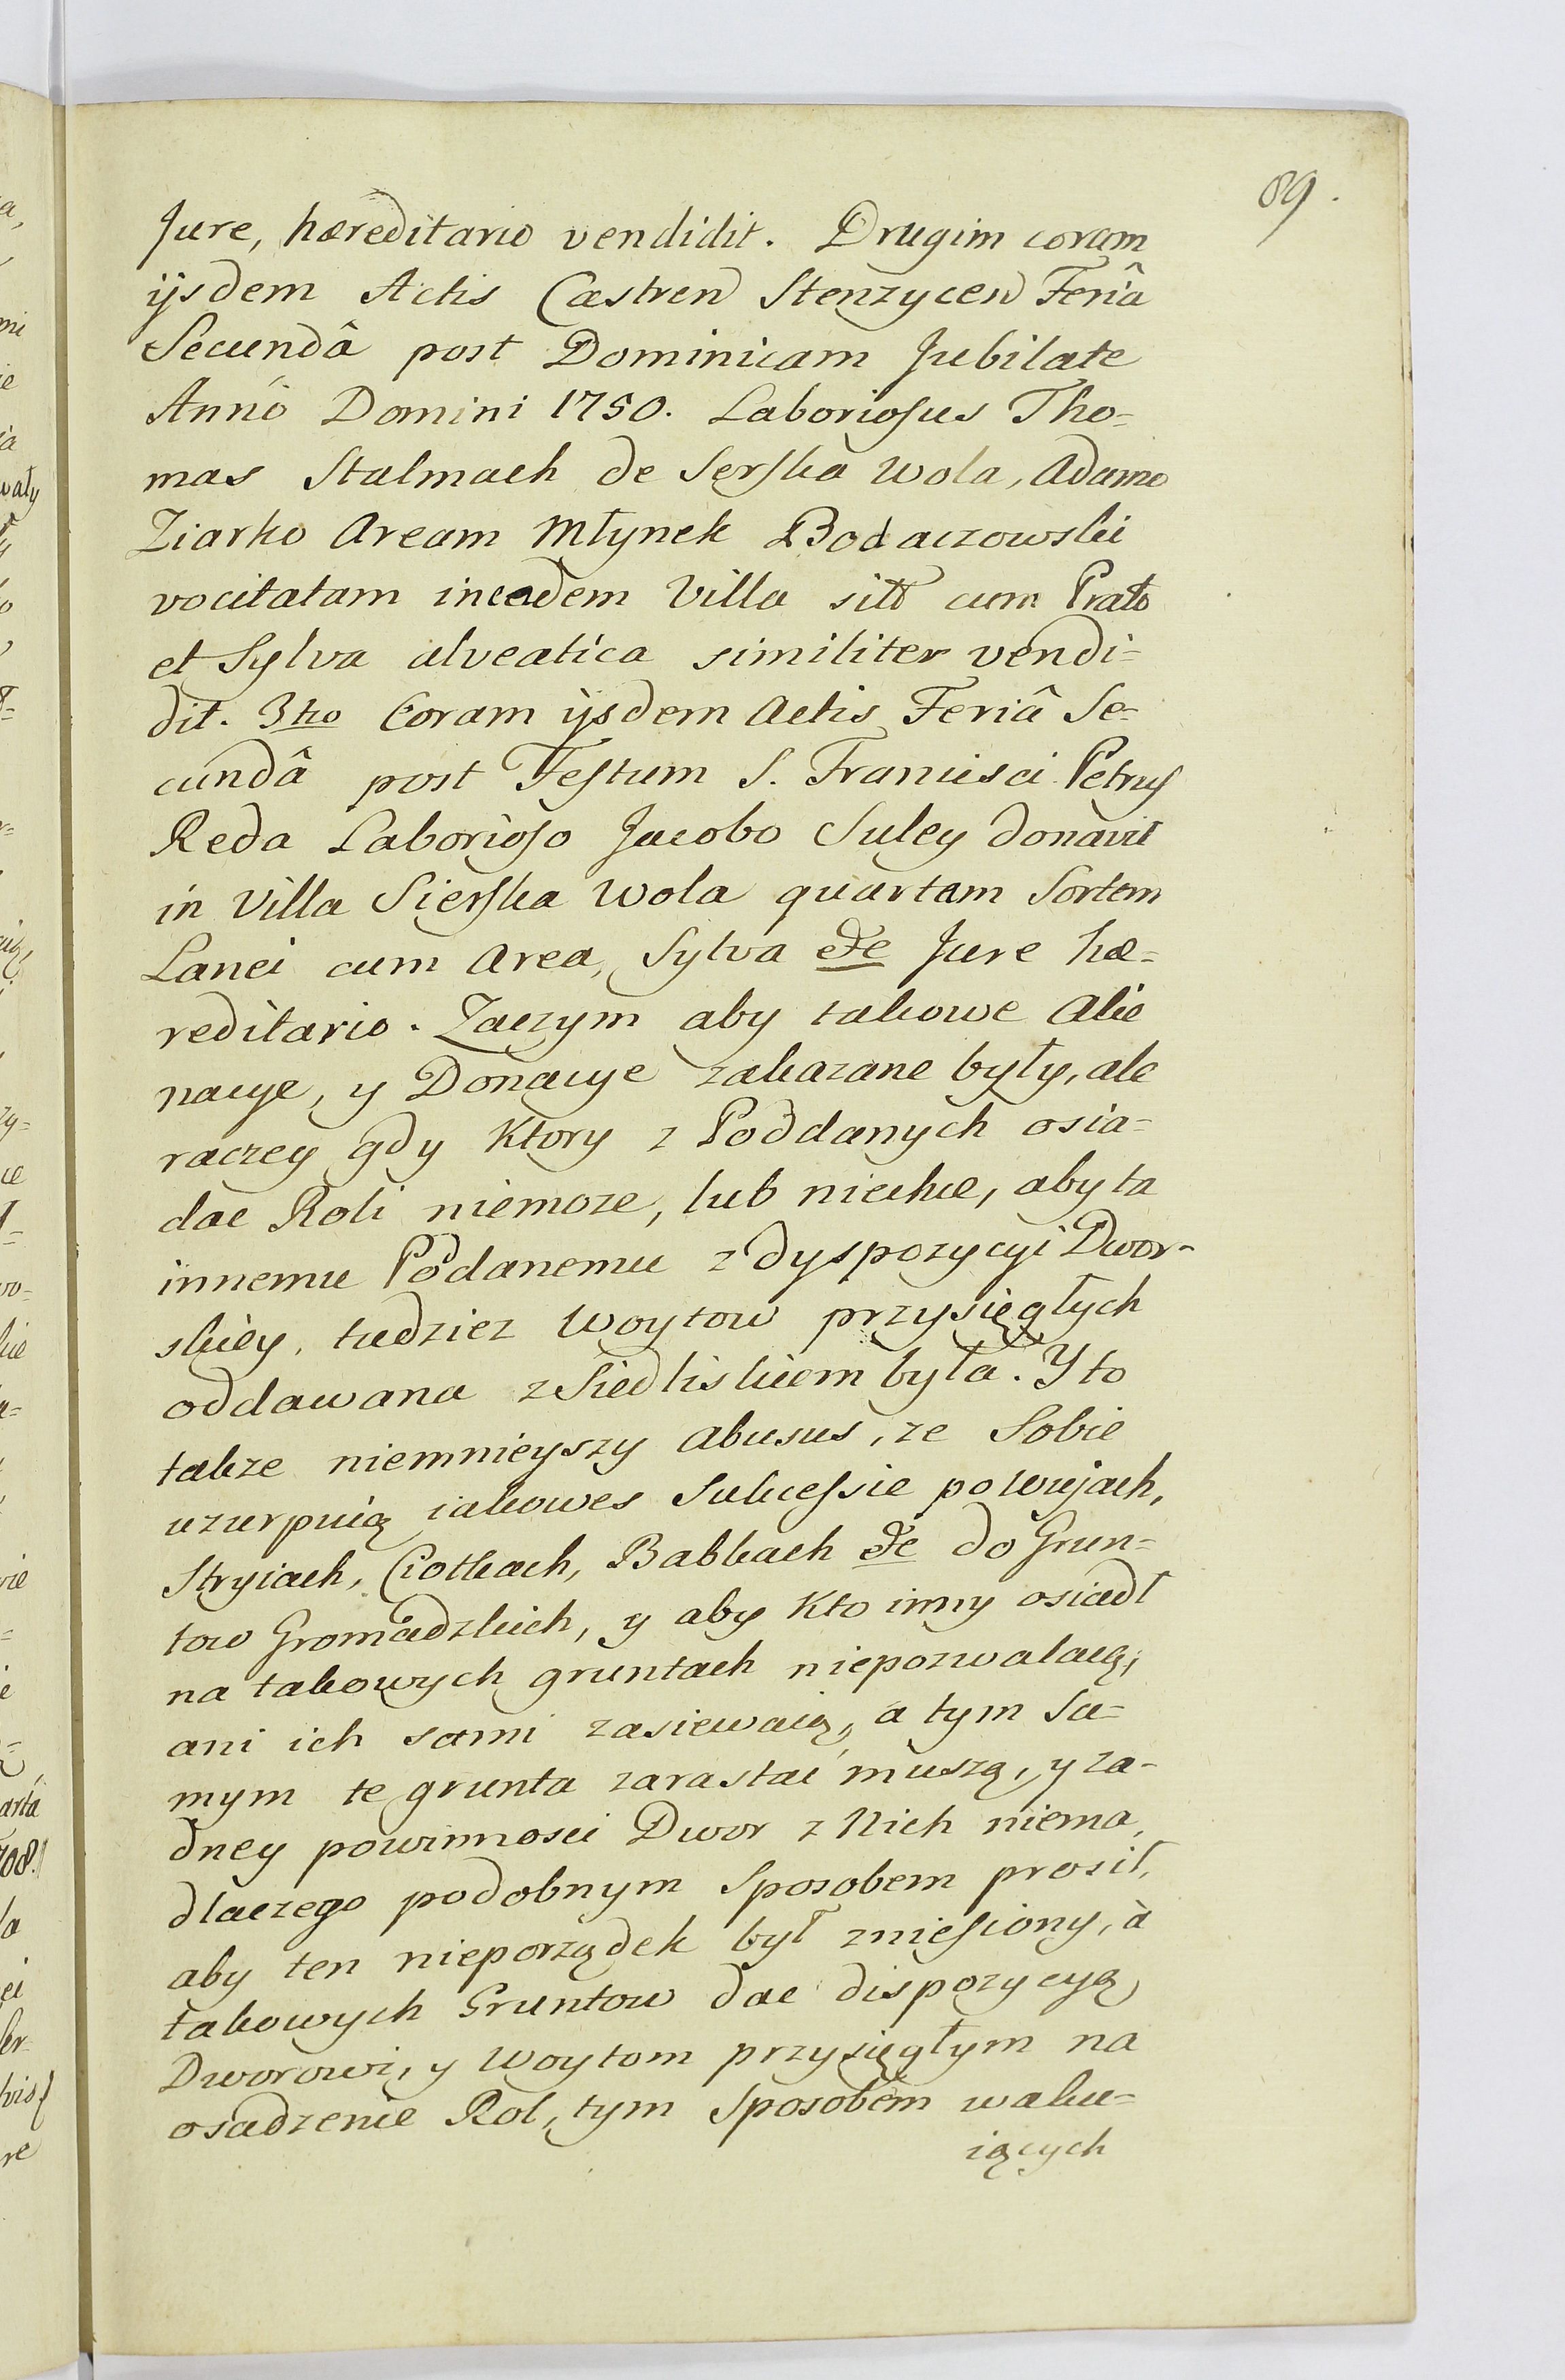 89.
Jure, hæreditario vendidit. Drugim coram
ijsdem Actis Castren Stenzycen Feriâ
Secundâ post Dominicam Jubilate
Anno Domini 1750. Laboriosus Tho=
mas Stalmach de Serska Wola, Adamo
Ziarko Aream Młynek Bodaczowski
vocitatam in eadem Villa sitt cum Prato
et Sylva alveatica similiter vendi=
dit. 3tio Coram ijsdem Actis Feriâ Se=
cundâ post Festum S. Francisci Petrus
Reda Laborioso Jacobo Suley donavit
in Villa Sierska Wola quartam Sortem
Lanei cum Area, Sylva &c Jure hæ=
reditario. Zaczym aby takowe Alie
nacye, y Donacye zakazane były, ale
raczey gdy Ktory z Poddanych osia=
dac Roli niemoze, lub niechce, aby ta
innemu Poddanemu z dyspozycyi Dwor=
skiey, tudziez Woytow przysięgłych
oddawana z Siedliskiem była. Y to
takze niemnieyszy abusus, ze Sobie
uzurpuią iakowes Sukcessie po Wujach,
Stryiach, Ciotkach, Babkach &c do Grun=
tow Gromadzkich, y aby Kto inny osiadł
na takowych gruntach niepozwalaią,
ani ich sami zasiewaią, a tym Sa=
mym te grunta zarastać muszą, y za=
dney powinnosci Dwor z Nich niema,
dlaczego podobnym Sposobem prosił,
aby ten nieporządek był zniesiony, à
takowych Gruntow dac dispozycyą
Dworowi, y Woytom przysięgłym na
osadzenie Rol, tym Sposobem waku=
iących